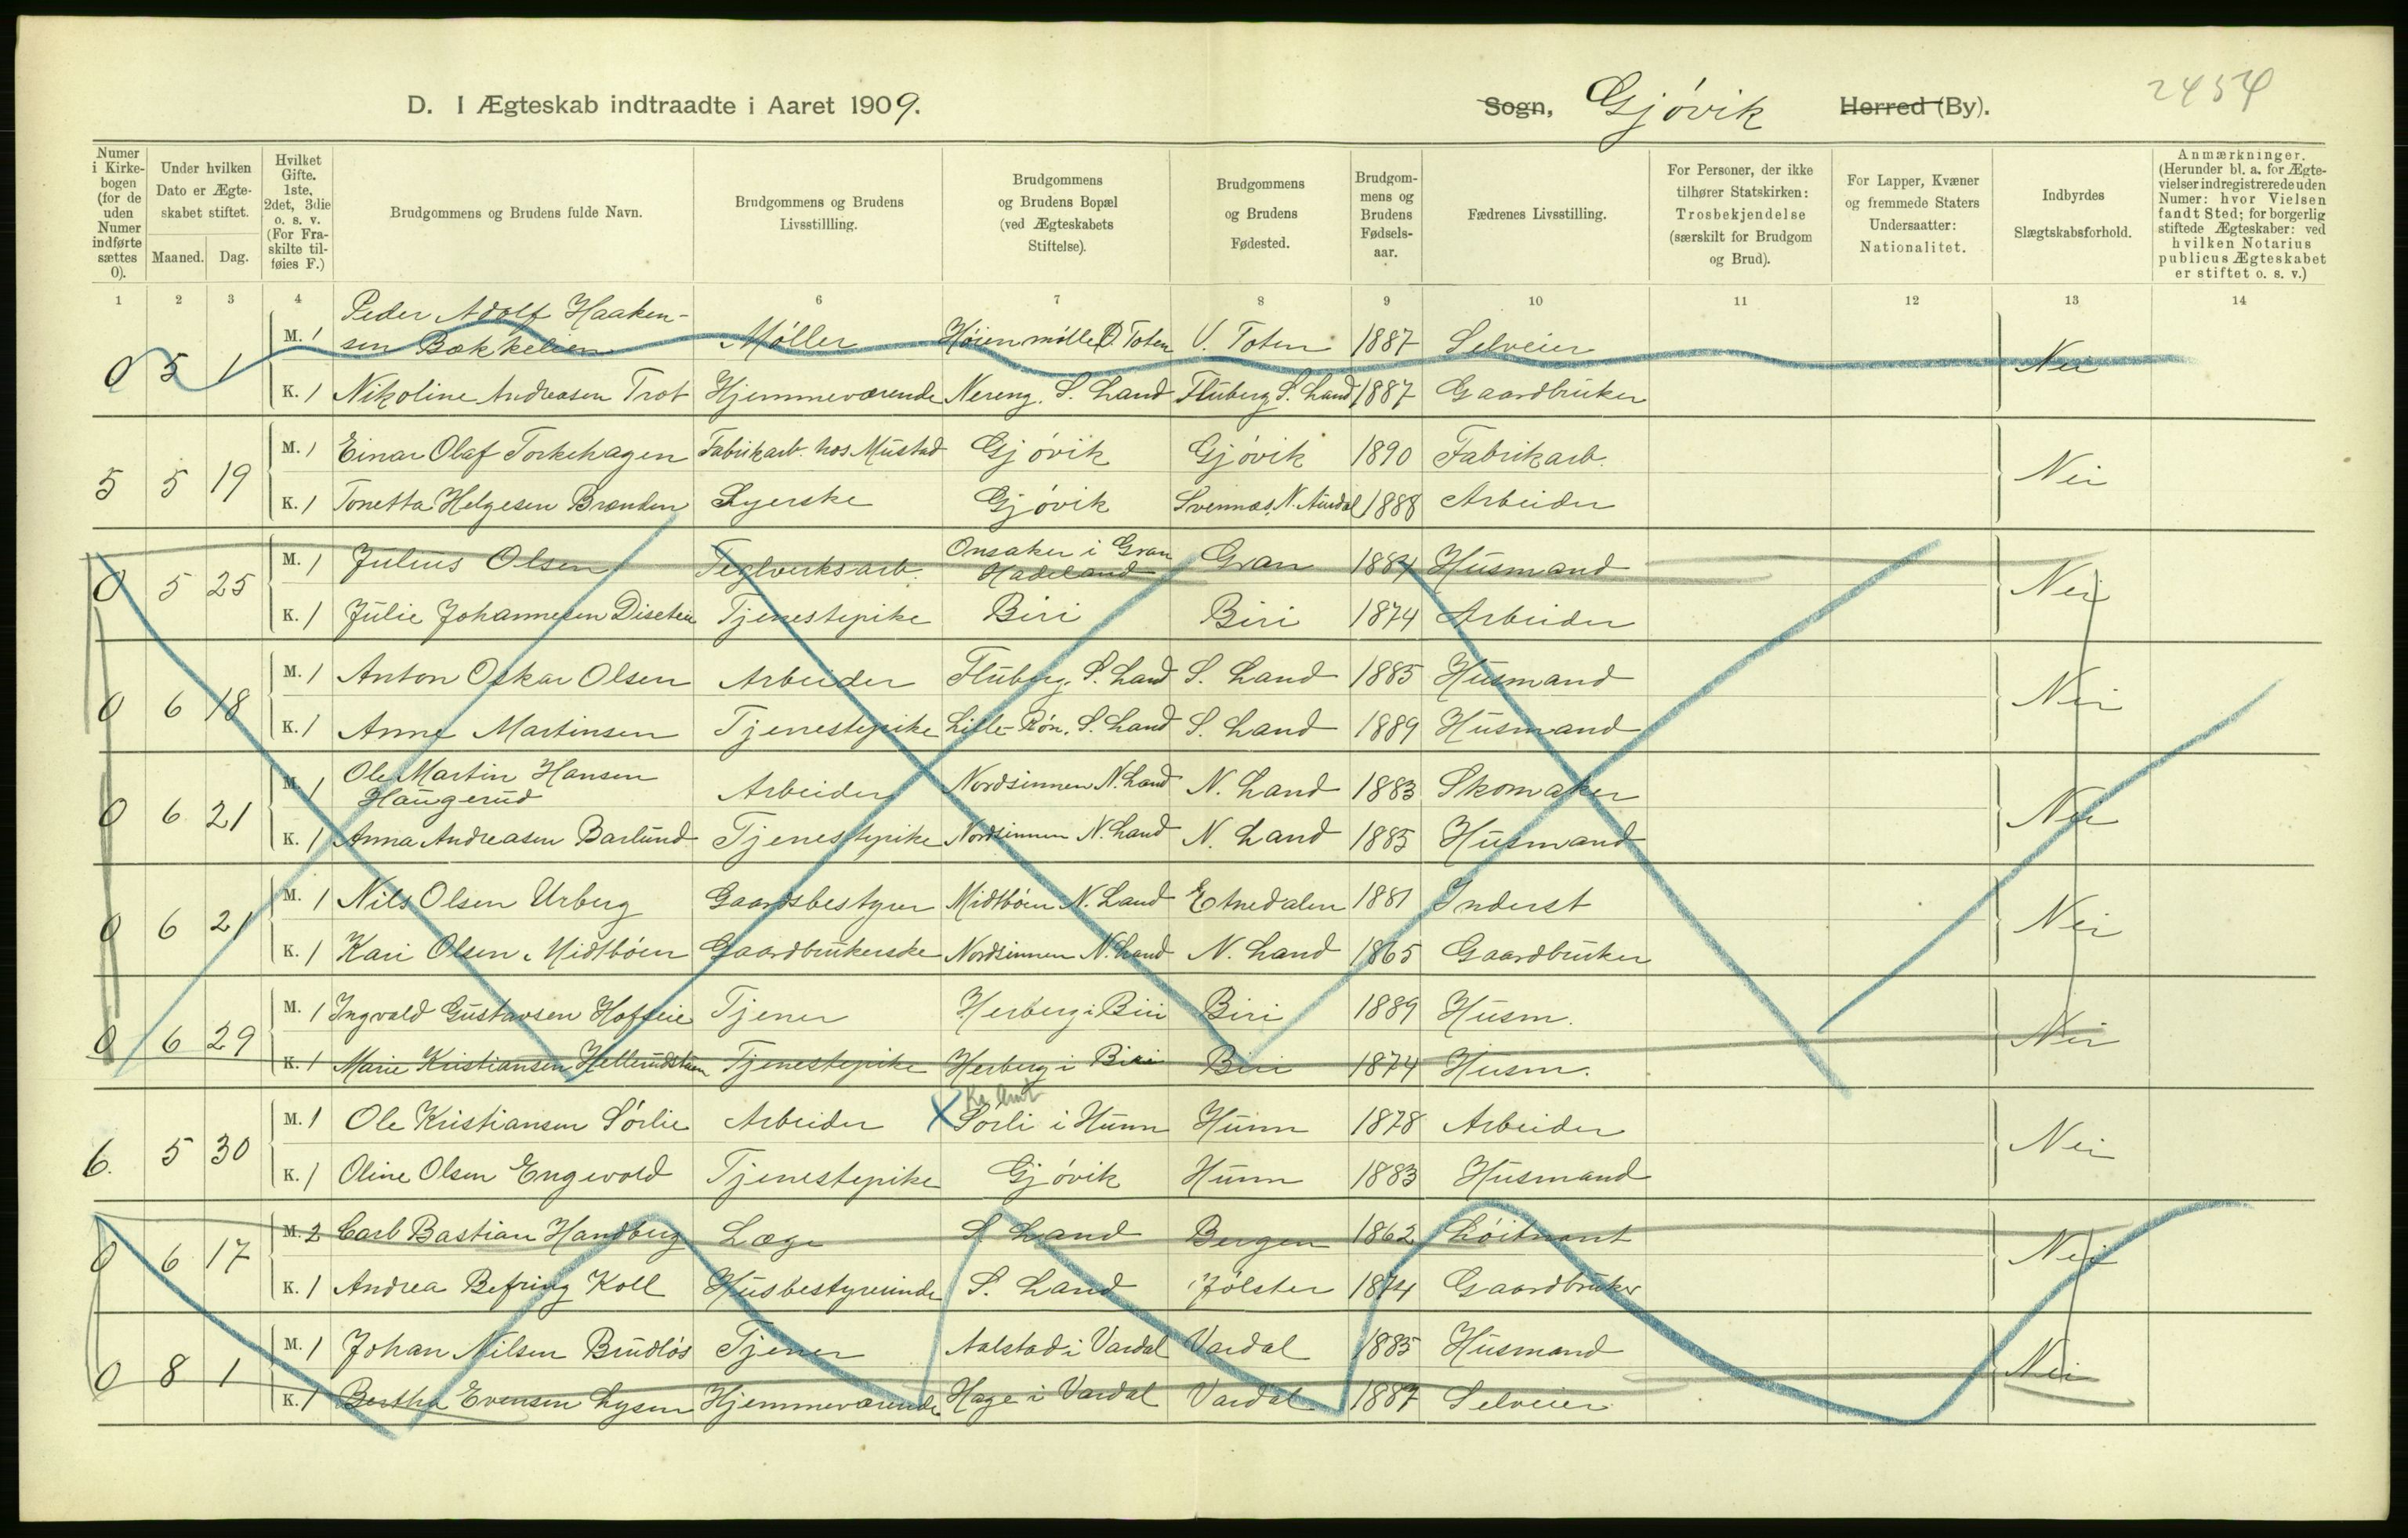 2454
D. I Ægteskab indtraadte i Aaret 1909. Sogn, Gjövik Herred (By).
Numer i Kirkebogen (for de uden Numer indførte sættes 0).
Under hvilken Dato er Ægteskabet stiftet.
Maaned. Dag.
Hvilket Gifte. 1ste, 2det, 3die o. s. v. (For Fraskilte tilføies F.)
Brudgommens og Brudens fulde Navn.
Brudgommens og Brudens Livsstillling.
Brudgommens og Brudens Bopæl (ved Ægteskabets Stiftelse).
Brudgommens og Brudens Fødested.
Brudgommens og Brudens Fødselsaar.
Fædrenes Livsstilling.
For Personer, der ikke tilhører Statskirken: Trosbekjendelse (særskilt for Brudgom og Brud).
For Lapper, Kvæner og fremmede Staters Undersaatter: Nationalitet.
Indbyrdes Slægtskabsforhold.
Anmærkninger. (Herunder bl. a. for Ægtevielser indregistrerede uden Numer: hvor Vielsen fandt Sted; for borgerlig stiftede Ægteskaber: ved hvilken Notarius publicus Ægteskabet er stiftet o. s. v.)
1 2 3 4 6 7 8 9 10 11 12 13 14
0 5 1 M. 1 Peder Adolf Haakensen Bækkelien Möller Höienmölle Ö. Toten V. Toten 1887 Selveier Nei
K. 1 Nikoline Andreasen Trot Hjemmeværende Nereng, S. Land Fluberg S. Land 1887 Gaardbruker
5 5 19 M. 1 Einar Olaf Torkehagen Fabrikarb. hos Mustad Gjövik Gjövik 1890 Fabrikarb. Nei
K. 1 Tonetta Helgesen Brænden Syerske Gjövik Svennæs, N. Aurdal 1888 Arbeider
0 5 25 M. 1 Julius Olsen Teglverksarb. Onsaker i Gran Hadeland Gran 1884 Husmand Nei
K. 1 Julie Johannesen Diseteie Tjenestepike Biri Biri 1874 Arbeider
0 6 18 M. 1 Anton Oskar Olsen Arbeider Fluberg, S. Land S. Land 1885 Husmand Nei
K. 1 Anne Martinsen Tjenestepike Lille-Rön, S. Land S. Land 1889 Husmand
0 6 21 M. 1 Ole Martin Hansen Haugerud Arbeider Nordsinnen N. Land N. Land 1883 Skomaker Nei
K. 1 Anna Andreasen Barlund Tjenestepike Nordsinnen N. Land N. Land 1885 Husmand
0 6 21 M. 1 Nils Olsen Urberg Gaardsbestyrer Midtböen N. Land Etnedalen 1881 Inderst Nei
K. 1 Kari Olsen Midtböen Gaardbrukerske Nordsinnen N. Land N. Land 1865 Gaardbruker
0 6 29 M. 1 Ingvald Gustavsen Hofseie Tjener Herberg i Biri Biri 1889 Husm. Nei
K. 1 Marie Kristiansen Tjenestepike Herberg i Biri Biri 1874 Husm.
6. 5 30 M. 1 Ole Kristiansen Sörlie Arbeider Sörli i Hunn Hunn 1878 Arbeider Nei
K. 1 Oline Olsen Engevold Tjenestepike Gjövik Hunn 1883 Husmand
0 6 17 M. 2 Carl Bastian Handberg Læge S. Land Bergen 1862 Löitnant Nei
K. 1 Andrea Befring Koll Husbestyrerinde S. Land Jölster 1874 Gaardbruker
0 8 1 M. 1 Johan Nilsen Brudlös Tjener Aalstad i Vardal Vardal 1885 Husmand Nei
K. 1 Bertha Evensen Lysen Hjemmeværende Hage i Vardal Vardal 1887 Selveier